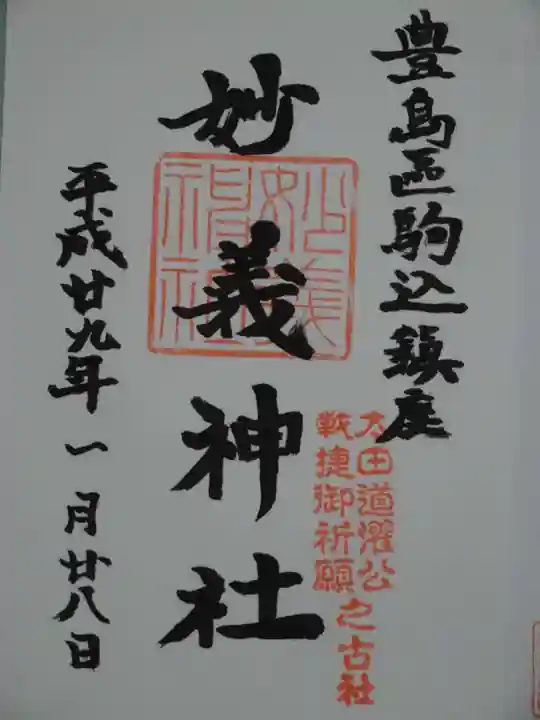 豊島區駒込鎮座
太田道灌公
戦捷御祈願之古社
妙義神社
妙義
神社
平成廿九年一月廿八日